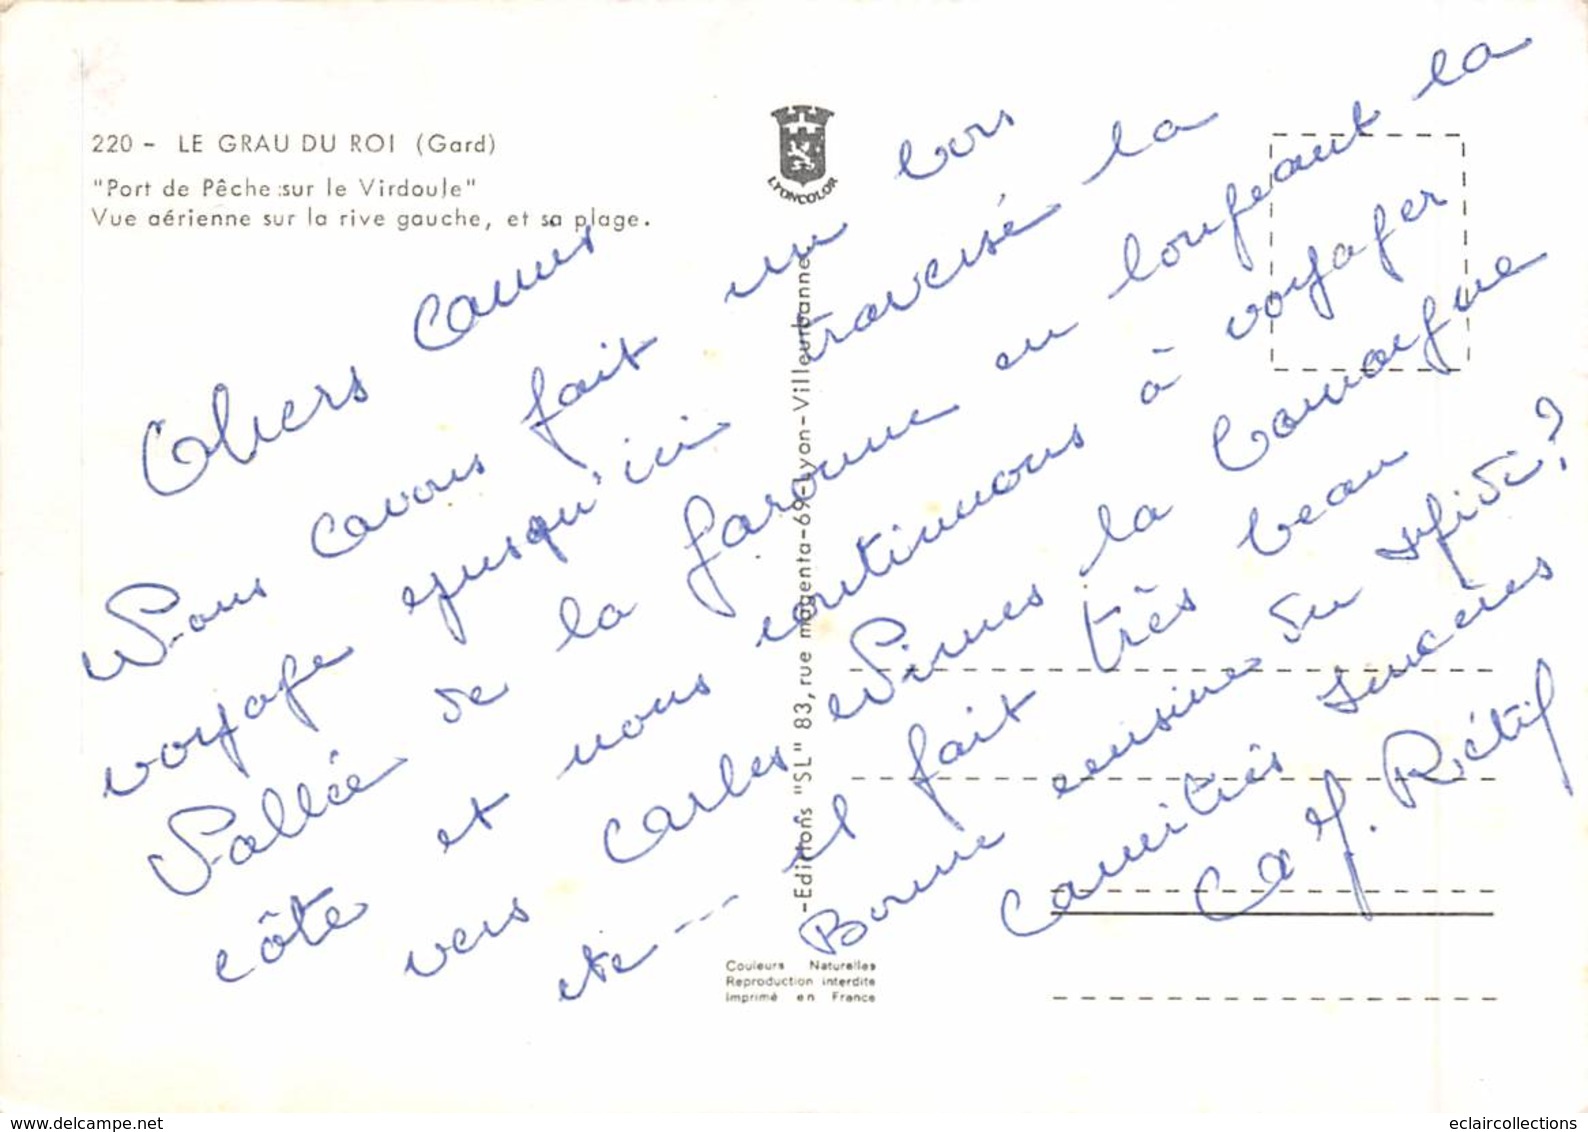 220 - LE GRAU DU ROI (Gard)
"Port de Pêche sur le Virdoule"
Vue aérienne sur la rive gauche, et sa plage.
LYONCOLOR
-Editions "SL" 83, rue magenta-69-Lyon-Villeurbanne
Couleurs Naturelles
Reproduction interdite
Imprimé en France
Chers amis
Nous avons fait un bon
voyage jusqu'ici traversé la
Vallée de la Garonne en longeant la
côte et nous continuons à voyager
vers Arles Nîmes la Camargue
etc --- il fait très beau
Bonne cuisine du midi?
amitiés sincères
J. Rétif
delcampe.net
eclaircollections